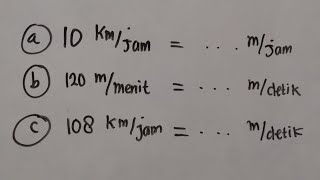 a 10 km/jam = ... m/jam
b 120 m/menit = ... m/detik
c 108 km/jam = ... m/detik